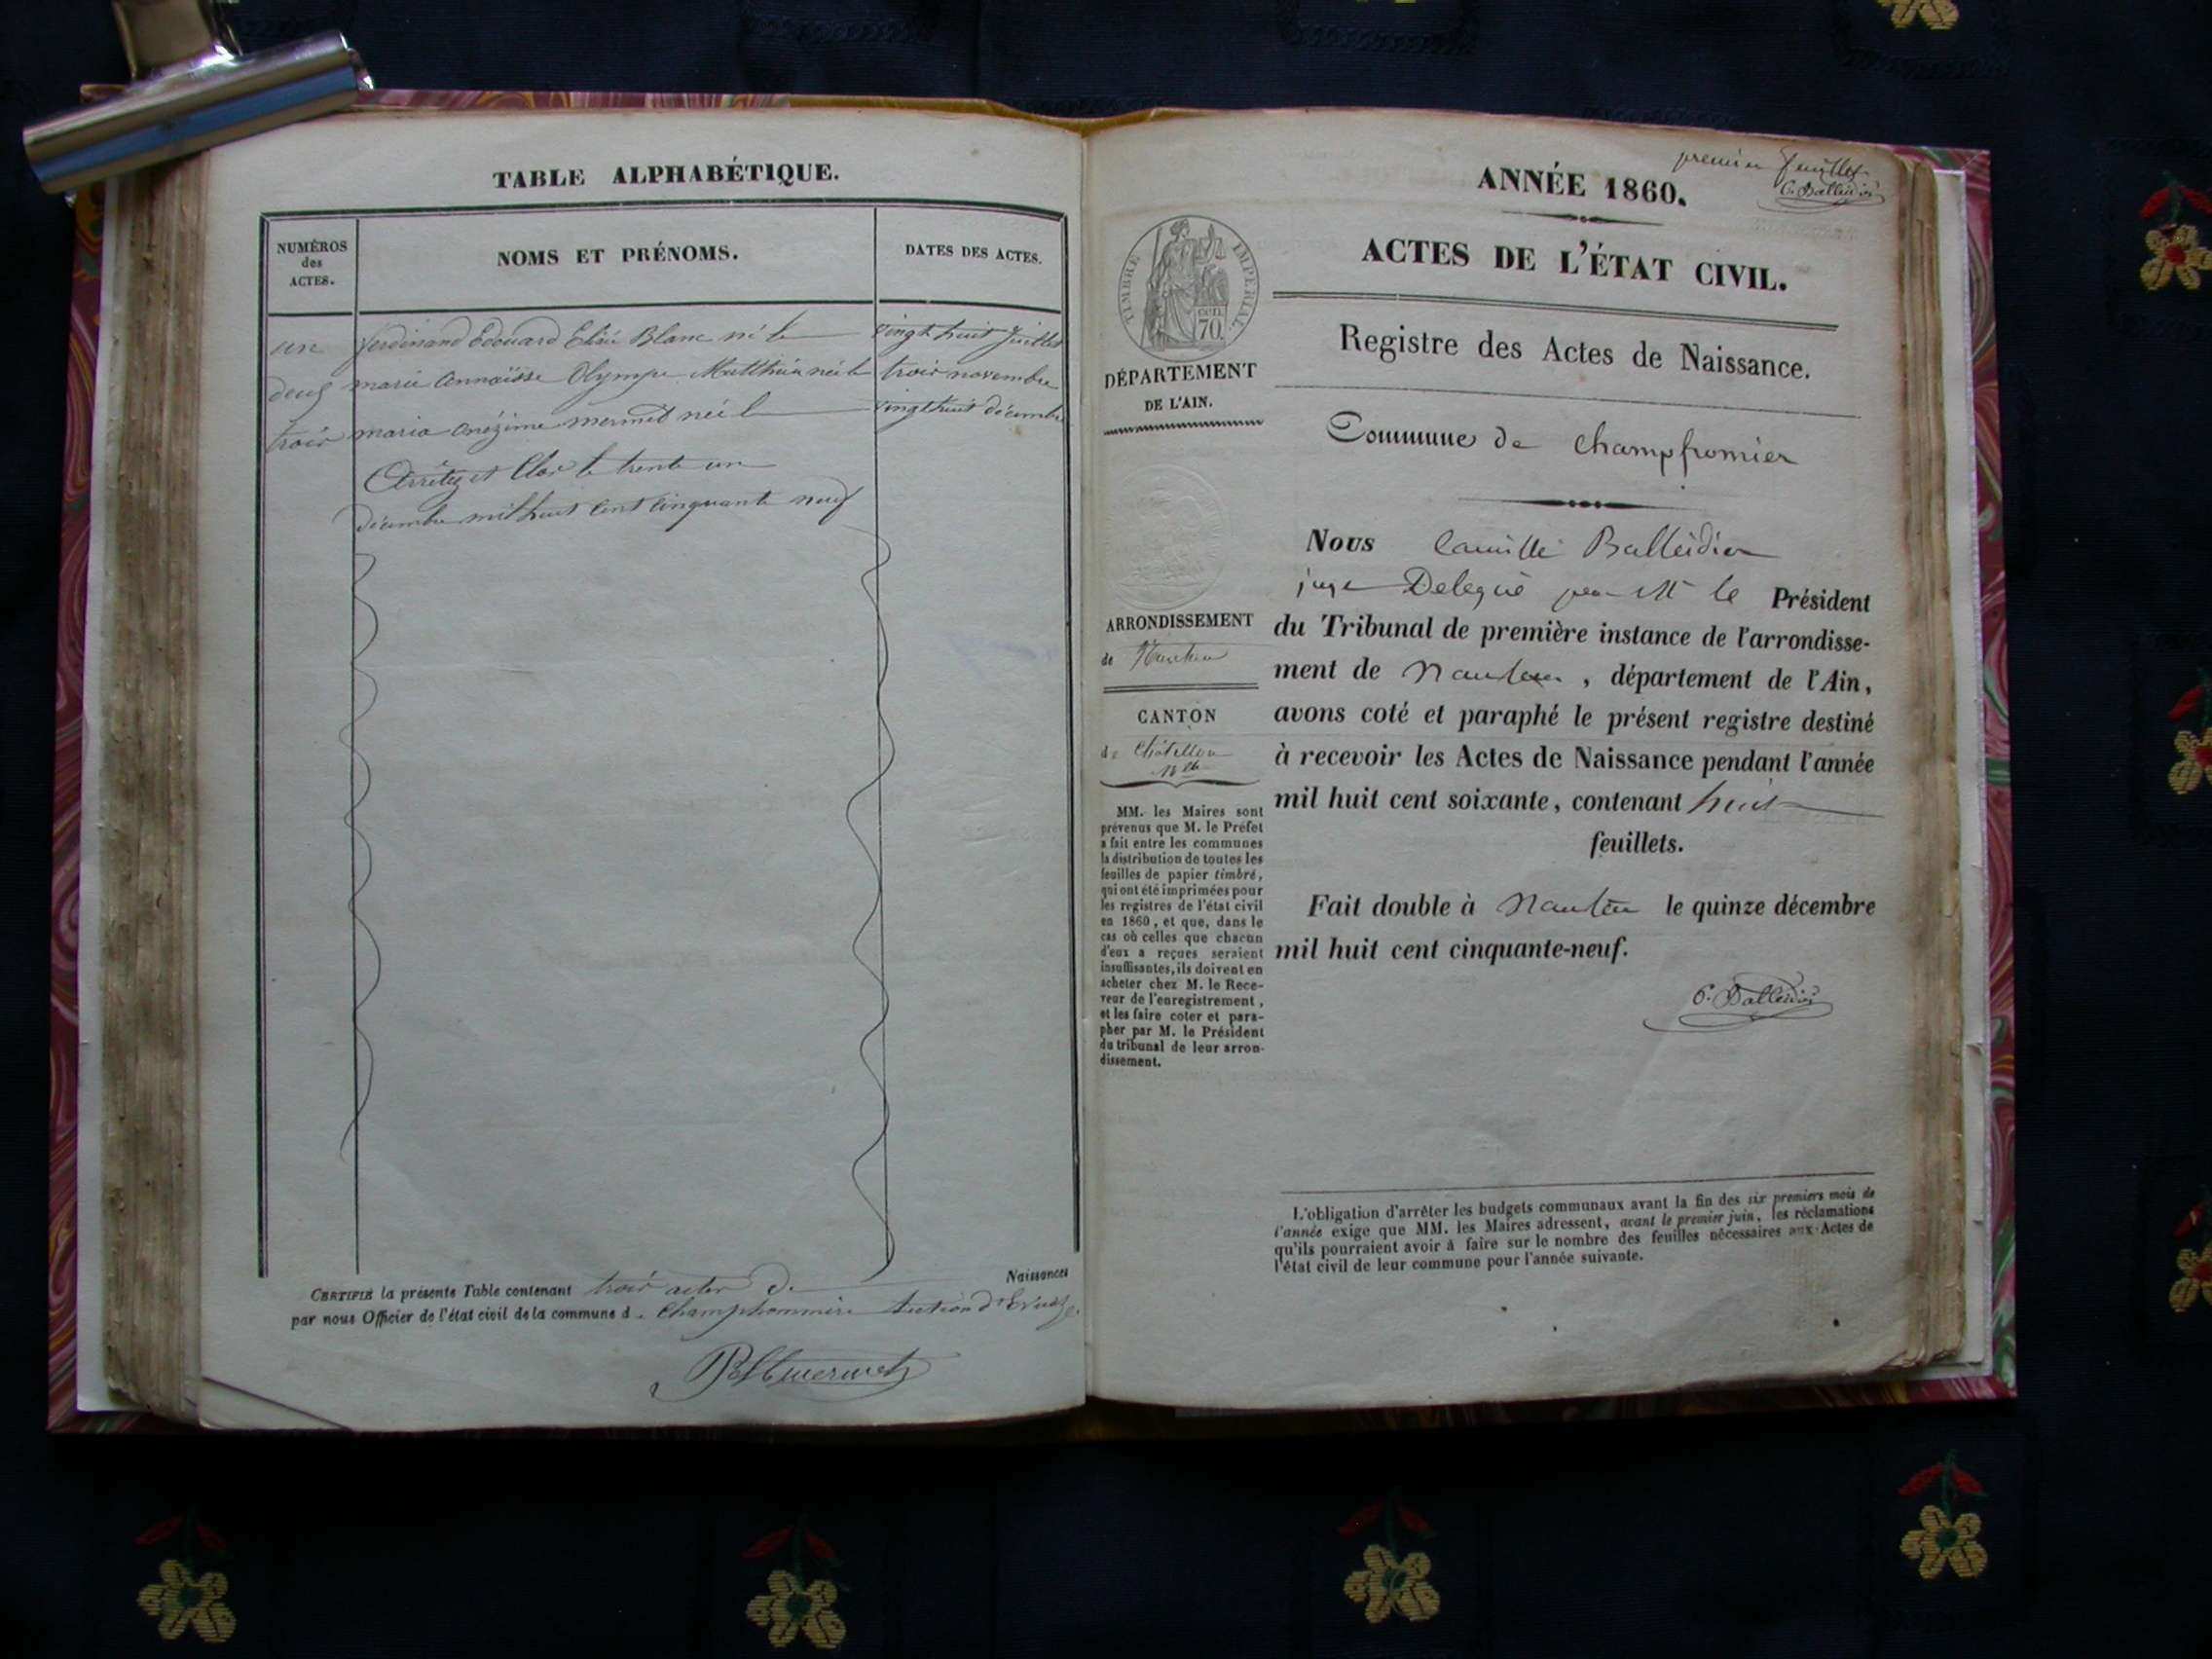 TABLE ALPHABÉTIQUE.
NUMÉROS
des
ACTES.
NOMS ET PRÉNOMS.
DATES DES ACTES.
un ferdinand Edouard Elie Blanc né le vingt huit Juillet
deux marie Olympe née le trois novembre
trois maria onézime mermet née le vingt huit décembre
Clos le trente un
décembre mil huit cent cinquante neuf
CERTIFIÉ la présente Table contenant trois actes de Naissances
par nous Officier de l'état civil de la commune d
premier feuillet
C. Balleidier
ANNÉE 1860.
ACTES DE L'ÉTAT CIVIL.
TIMBRE IMPÉRIAL.
CEN.
70.
Registre des Actes de Naissance.
DÉPARTEMENT
DE L'AIN.
Commune de Champfromier
Nous Camille Balleidier
juge Delegué par M le Président
du Tribunal de première instance de l'arrondisse-
ment de Nantua, département de l'Ain,
avons coté et paraphé le présent registre destiné
à recevoir les Actes de Naissance pendant l'année
mil huit cent soixante, contenant huit
feuillets.
Fait double à Nantua le quinze décembre
mil huit cent cinquante-neuf.
C. Balleidier
ARRONDISSEMENT
de Nantua
CANTON
de Châtillon
MM. les Maires sont
prévenus que M. le Préfet
a fait entre les communes
la distribution de toutes les
feuilles de papier timbré,
qui ont été imprimées pour
les registres de l'état civil
en 1860, et que, dans le
cas où celles que chacun
d'eux a reçues seraient
insuffisantes, ils doivent en
acheter chez M. le Rece-
veur de l'enregistrement,
et les faire coter et para-
pher par M. le Président
du tribunal de leur arron-
dissement.
L'obligation d'arrêter les budgets communaux avant la fin des six premiers mois de
l'année exige que MM. les Maires adressent, avant le premier juin, les réclamations
qu'ils pourraient avoir à faire sur le nombre des feuilles nécessaires aux Actes de
l'état civil de leur commune pour l'année suivante.